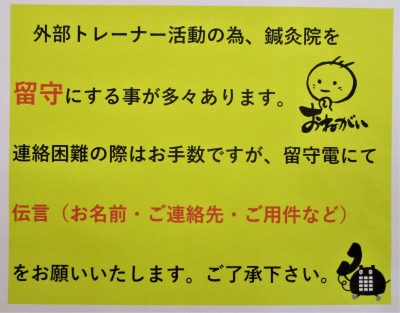 外部トレーナー活動の為、鍼灸院を
留守にする事が多々あります。
おねがい
連絡困難の際はお手数ですが、留守電にて
伝言（お名前・ご連絡先・ご用件など）
をお願いいたします。ご了承下さい。